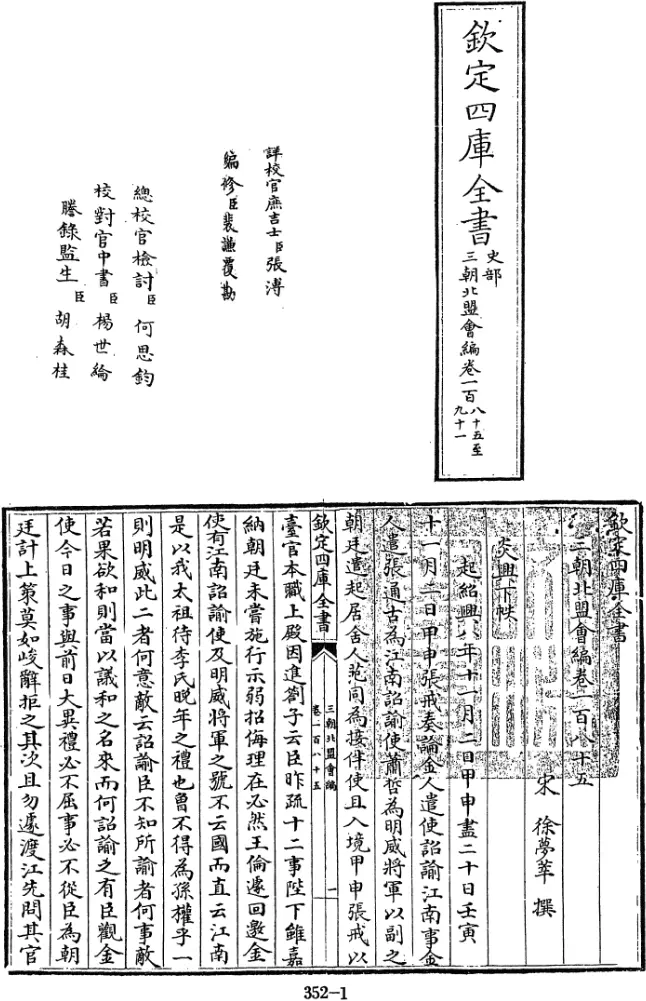 欽定四庫全書
史部
三朝北盟會編卷一百八十五至
九十一
詳校官庶吉士臣張溥
編修臣裴謙覆勘
總校官檢討臣何思鈞
校對官中書臣楊世綸
謄錄監生臣胡森桂
欽定四庫全書
三朝北盟會編卷一百八十五
宋 徐夢莘 撰
炎興下帙
起紹興八年十一月二日甲申盡二十日壬寅
十一月二日甲申張戒奏論金人遣使詔諭江南事金
人遣張通古為江南詔諭使蕭哲為明威將軍以副之
朝廷遣起居舍人范同為接伴使且入境甲申張戒以
欽定四庫全書
三朝北盟會編
卷一百八十五
一
臺官本職上殿因進劄子云臣昨疏十二事陛下雖嘉
納朝廷未嘗施行示弱招侮理在必然王倫遽回邀金
使有江南詔諭使及明威將軍之號不云國而直云江南
是以我太祖待李氏晚年之禮也曽不得為孫權乎一
則明威此二者何意敵云詔諭臣不知所諭者何事敵
若果欲和則當以議和之名來而何詔諭之有臣觀金
使今日之事與前日大異禮必不屈事必不從臣為朝
廷計上策莫如峻辭拒之其次且勿遽渡江先問其官
352-1